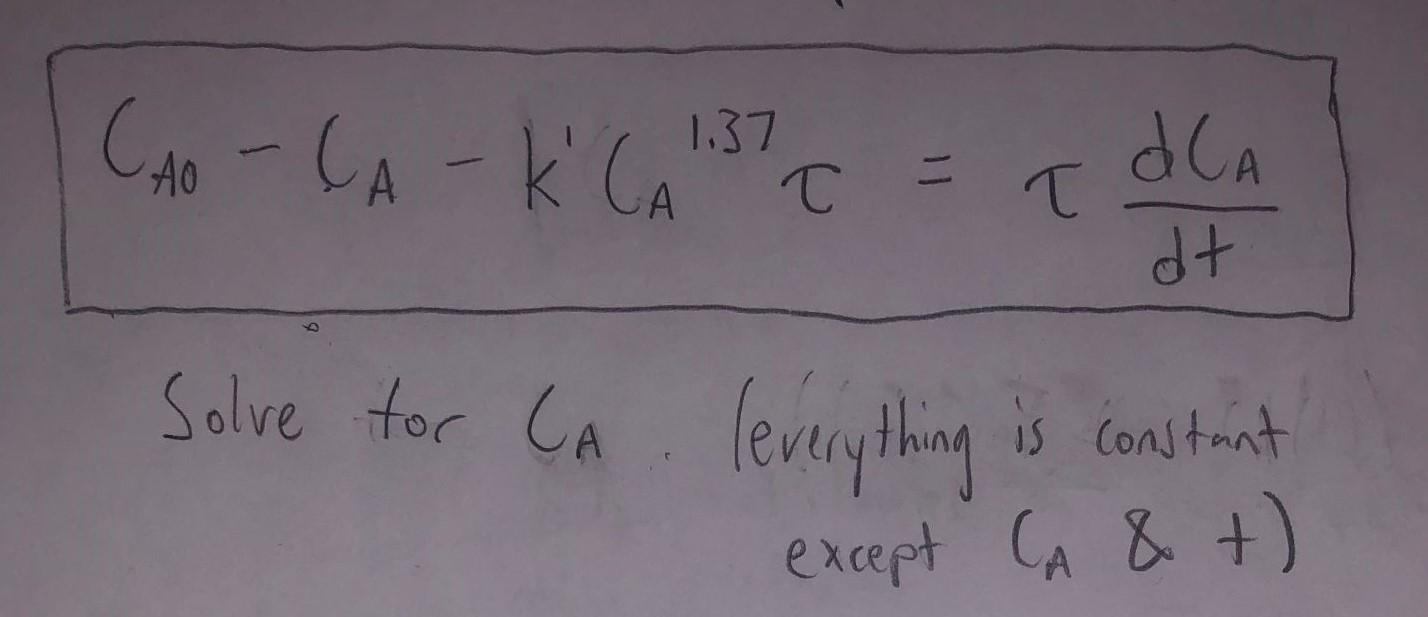 C_A0 - C_A - k' C_A^1.37 τ = τ dC_A/dt
Solve for C_A. (everything is constant
except C_A & t)